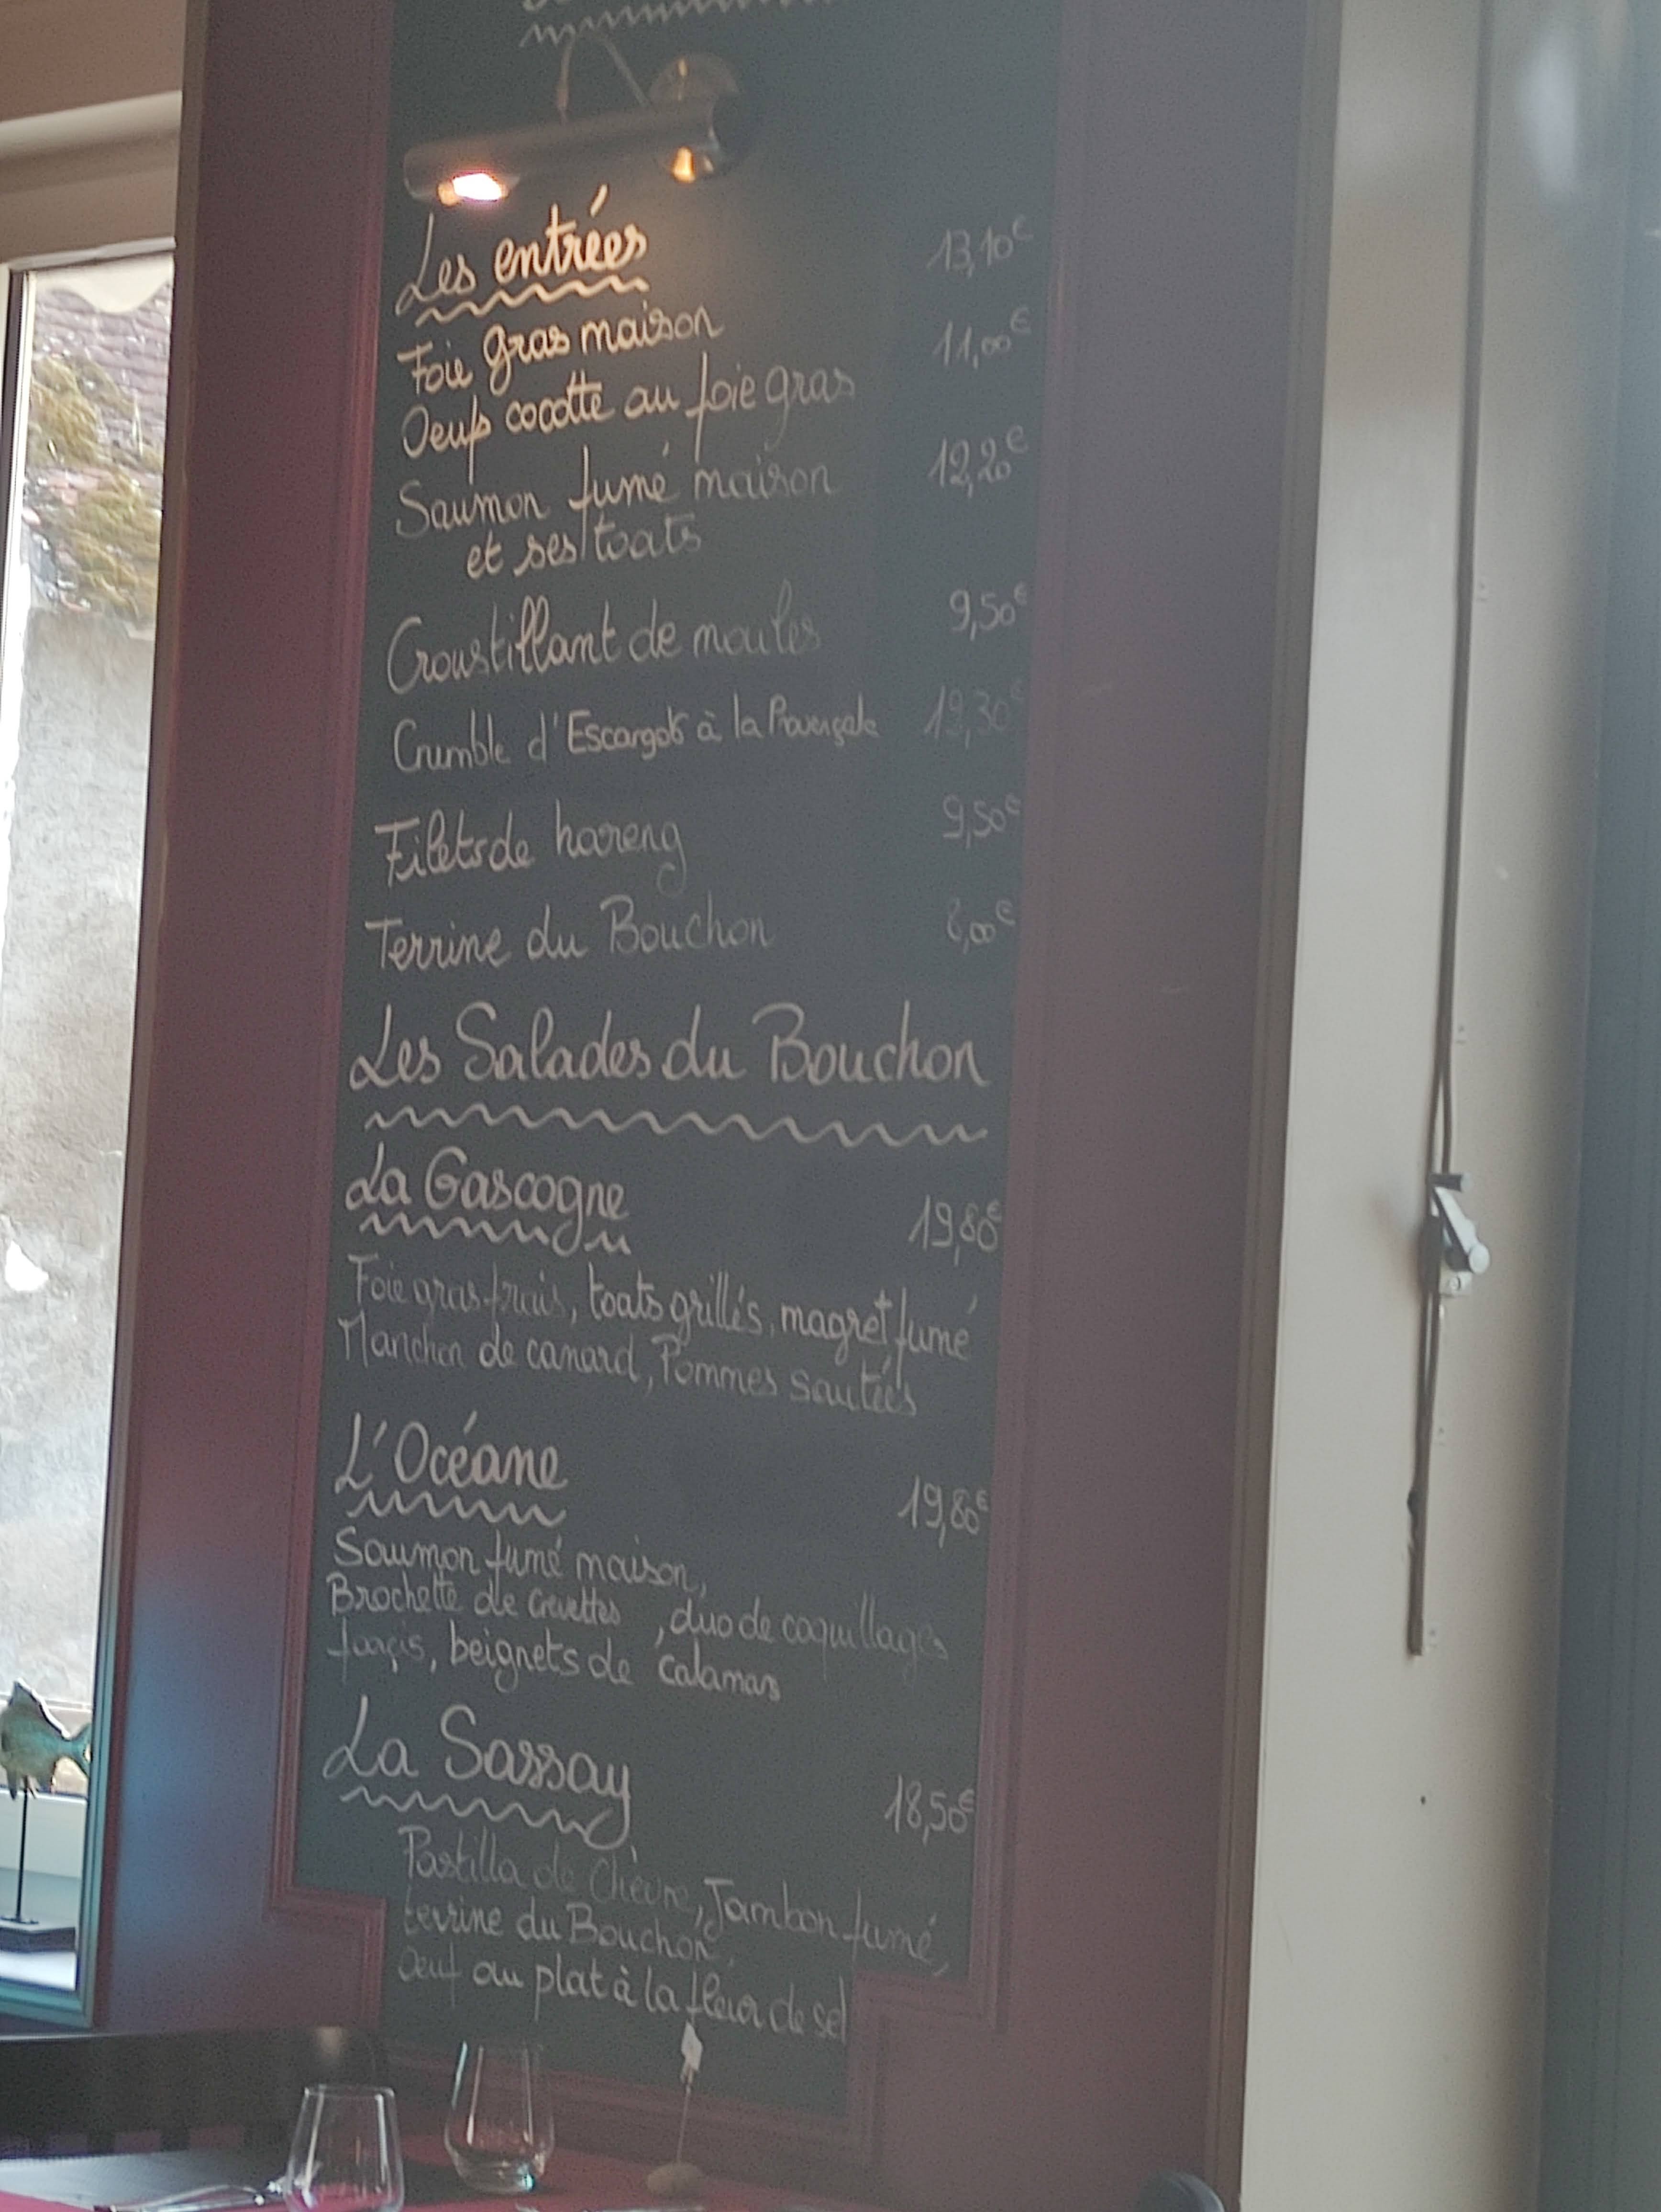 Les entrées
Foie gras maison 13,10€
Oeufs cocotte au foie gras 11,00€
Saumon fumé maison 12,20€
et ses toats
Croustillant de moules 9,50€
Crumble d'Escargots à la Provençale
Filets de hareng 9,50€
Terrine du Bouchon 8,00€
Les Salades du Bouchon
La Gascogne 19,80€
Foie gras frais, toats grillés, magret fumé
Manchon de canard, Pommes sautées
L'Océane 19,80€
Saumon fumé maison,
Brochette de crevettes, duo de coquillages
farçis, beignets de calamars
La Sassay 18,50€
Pastilla de Chèvre, Jambon fumé,
terrine du Bouchon,
Oeuf au plat à la fleur de sel